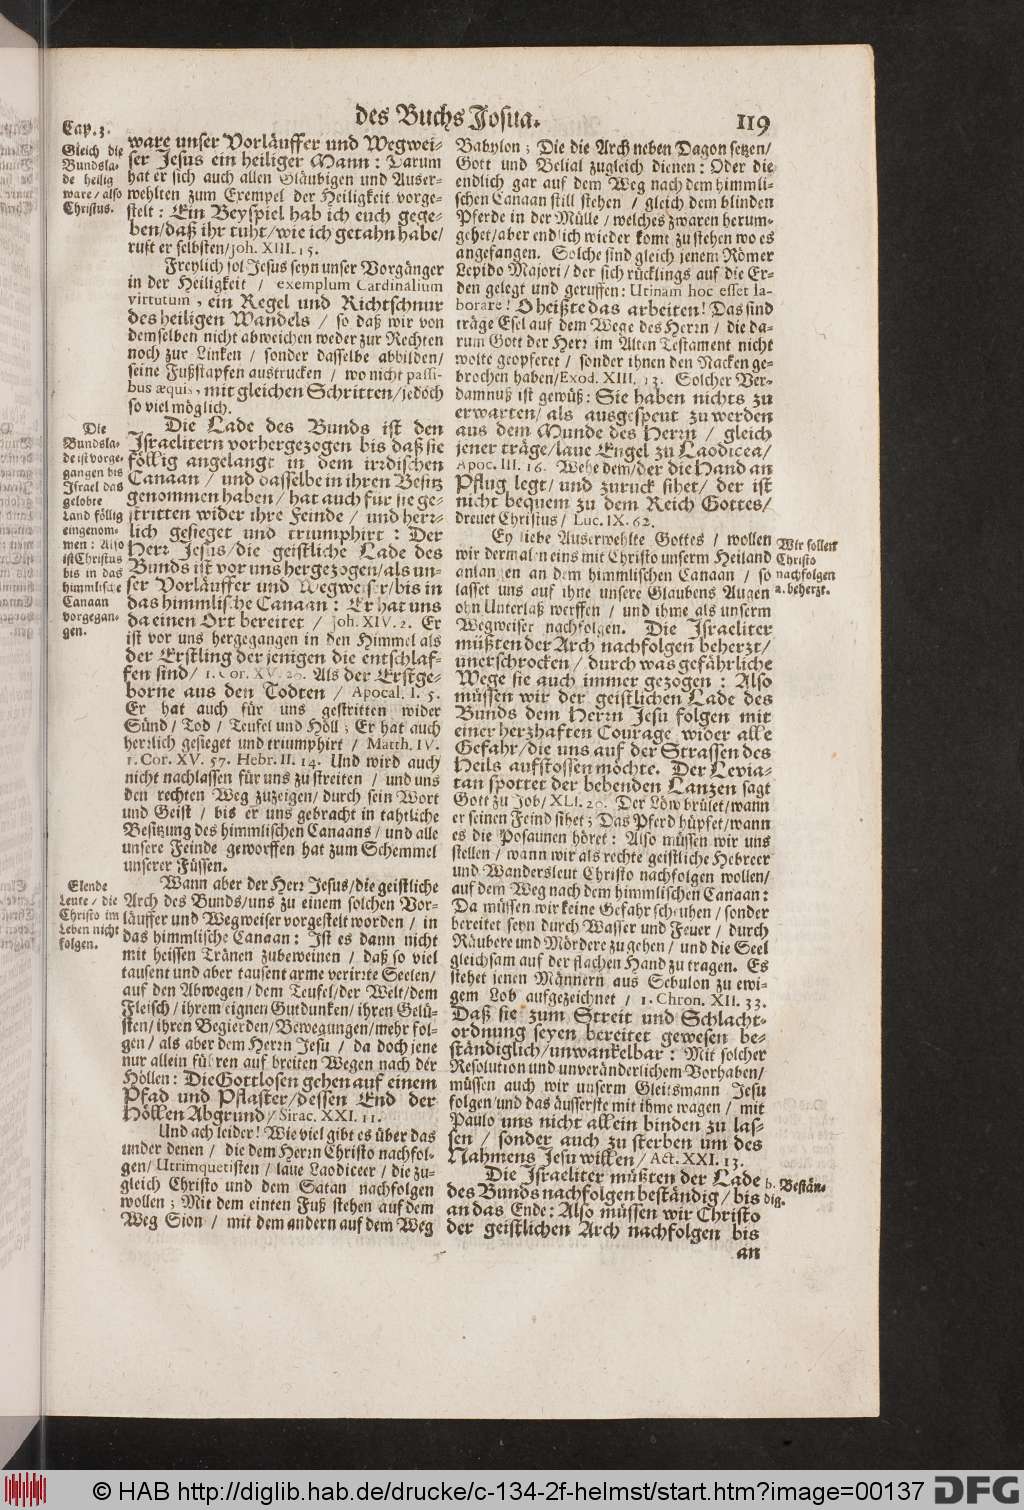 des Buchs Josua.
119
Cap. 3.
Gleich die
Bundsla-
de heilig
ware / also
Christus.
ware unser Vorläuffer und Wegwei-
ser Jesus ein heiliger Mann: Darum
hat er sich auch allen Gläubigen und Auser-
wehlten zum Exempel der Heiligkeit vorge-
stelt: Ein Beyspiel hab ich euch gege-
ben/daß ihr tuht/wie ich getahn habe/
rufft er selbsten/Joh. XIII. 15.
Freylich sol Jesus seyn unser Vorgänger
in der Heiligkeit / exemplum Cardinalium
virtutum, ein Regel und Richtschnur
des heiligen Wandels / so daß wir von
demselben nicht abweichen weder zur Rechten
noch zur Linken / sonder dasselbe abbilden/
seine Fußstapfen austrucken / wo nicht passi-
bus æquis, mit gleichen Schritten/jedoch
so viel möglich.
Die
Bundsla-
de ist vorge-
gangen bis
Israel das
gelobte
Land föllig
eingenom-
men: Also
ist Christus
bis in das
himmlische
Canaan
vorgegan-
gen.
Die Lade des Bunds ist den
Israelitern vorhergezogen bis daß sie
föllig angelangt in dem irrdischen
Canaan / und dasselbe in ihren Besitz
genommen haben / hat auch für sie ge-
stritten wider ihre Feinde / und herr-
lich gesieget und triumphirt: Der
Herr Jesus/die geistliche Lade des
Bunds ist vor uns hergezogen/als un-
ser Vorläuffer und Wegweiser/bis in
das himmlische Canaan: Er hat uns
da einen Ort bereitet / Joh. XIV. 2. Er
ist vor uns hergegangen in den Himmel als
der Erstling der jenigen die entschlaf-
fen sind/ 1. Cor. XV. 20. Als der Erstge-
borne aus den Todten / Apocal. I. 5.
Er hat auch für uns gestritten wider
Sünd / Tod / Teufel und Höll; Er hat auch
herrlich gesieget und triumphirt / Matth. IV.
1. Cor. XV. 57. Hebr. II. 14. Und wird auch
nicht nachlassen für uns zu streiten / und uns
den rechten Weg zuzeigen/durch sein Wort
und Geist / bis er uns gebracht in tahtliche
Besitzung des himmlischen Canaans/und alle
unsere Feinde geworffen hat zum Schemmel
unserer Füssen.
Elende
Leute / die
Christo im
Leben nicht
folgen.
Wann aber der Herr Jesus/die geistliche
Arch des Bunds/uns zu einem solchen Vor-
läuffer und Wegweiser vorgestelt worden / in
das himmlische Canaan: Ist es dann nicht
mit heissen Tränen zubeweinen / daß so viel
tausent und aber tausent arme verirrte Seelen/
auf den Abwegen/dem Teufel/der Welt/dem
Fleisch/ihrem eignen Gutdunken/ihren Gelü-
sten/ihren Begierden/Bewegungen/mehr fol-
gen/als aber dem Herrn Jesu / da doch jene
nur allein führen auf breiten Wegen nach der
Höllen: Die Gottlosen gehen auf einem
Pfad und Pflaster/dessen End der
Höllen Abgrund/ Sirac. XXI. 11.
Und ach leider! Wie viel gibt es über das
under denen / die dem Herrn Christo nachfol-
gen/Utrimquetisten / laue Laodiceer / die zu-
gleich Christo und dem Satan nachfolgen
wollen; Mit dem einten Fuß stehen auf dem
Weg Sion / mit dem andern auf dem Weg
Babylon; Die die Arch neben Dagon setzen/
Gott und Belial zugleich dienen: Oder die
endlich gar auf dem Weg nach dem himmli-
schen Canaan still stehen / gleich dem blinden
Pferde in der Mülle / welches zwaren herum-
gehet/aber endlich wieder komt zu stehen wo es
angefangen. Solche sind gleich jenem Römer
Lepido Majori/der sich rücklings auf die Er-
den gelegt und geruffen: Utinam hoc esset la-
borare! O heißte das arbeiten! Das sind
träge Esel auf dem Wege des Herrn / die da-
rum Gott der Herr im Alten Testament nicht
wolte geopferet / sonder ihnen den Nacken ge-
brochen haben/Exod. XIII. 13. Solcher Ver-
damnuß ist gewüß: Sie haben nichts zu
erwarten/als ausgespeut zu werden
aus dem Munde des Herrn / gleich
jener träge/laue Engel zu Laodicea/
Apoc. III. 16. Wehe dem/der die Hand an
Pflug legt/und zuruck sihet/der ist
nicht bequem zu dem Reich Gottes/
dreuet Christus / Luc. IX. 62.
Ey liebe Auserwehlte Gottes / wollen
wir dermalen eins mit Christo unserm Heiland
anlangen an dem himmlischen Canaan / so
lasset uns auf ihne unsere Glaubens Augen
ohn Unterlaß werffen / und ihme als unserm
Wegweiser nachfolgen. Die Israeliter
müßten der Arch nachfolgen beherzt/
unerschrocken / durch was gefährliche
Wege sie auch immer gezogen: Also
müssen wir der geistlichen Lade des
Bunds dem Herrn Jesu folgen mit
einer herzhaften Courage wider alle
Gefahr/die uns auf der Strassen des
Heils aufstossen möchte. Der Levia-
tan spottet der bebenden Lanzen sagt
Gott zu Job/XLI. 20. Der Löw brület/wann
er seinen Feind sihet; Das Pferd hüpfet/wann
es die Posaunen höret: Also müssen wir uns
stellen / wann wir als rechte geistliche Hebreer
und Wandersleut Christo nachfolgen wollen/
auf dem Weg nach dem himmlischen Canaan:
Da müssen wir keine Gefahr scheuhen / sonder
bereitet seyn durch Wasser und Feuer / durch
Räubere und Mördere zu gehen / und die Seel
gleichsam auf der flachen Hand zu tragen. Es
stehet jenen Männern aus Sebulon zu ewi-
gem Lob aufgezeichnet / 1. Chron. XII. 33.
Daß sie zum Streit und Schlacht-
ordnung seyen bereitet gewesen be-
ständiglich/unwankelbar: Mit solcher
Resolution und unveränderlichem Vorhaben/
müssen auch wir unserm Gleitsmann Jesu
folgen und das äusserste mit ihme wagen / mit
Paulo uns nicht allein binden zu las-
sen / sonder auch zu sterben um des
Nahmens Jesu willen / Act. XXI. 13.
Die Israeliter müßten der Lade
des Bunds nachfolgen beständig / bis
an das Ende: Also müssen wir Christo
der geistlichen Arch nachfolgen bis
an
Wir sollen
Christo
nachfolgen
a. beherzt.
b. Bestän-
dig.
© HAB http://diglib.hab.de/drucke/c-134-2f-helmst/start.htm?image=00137
DFG